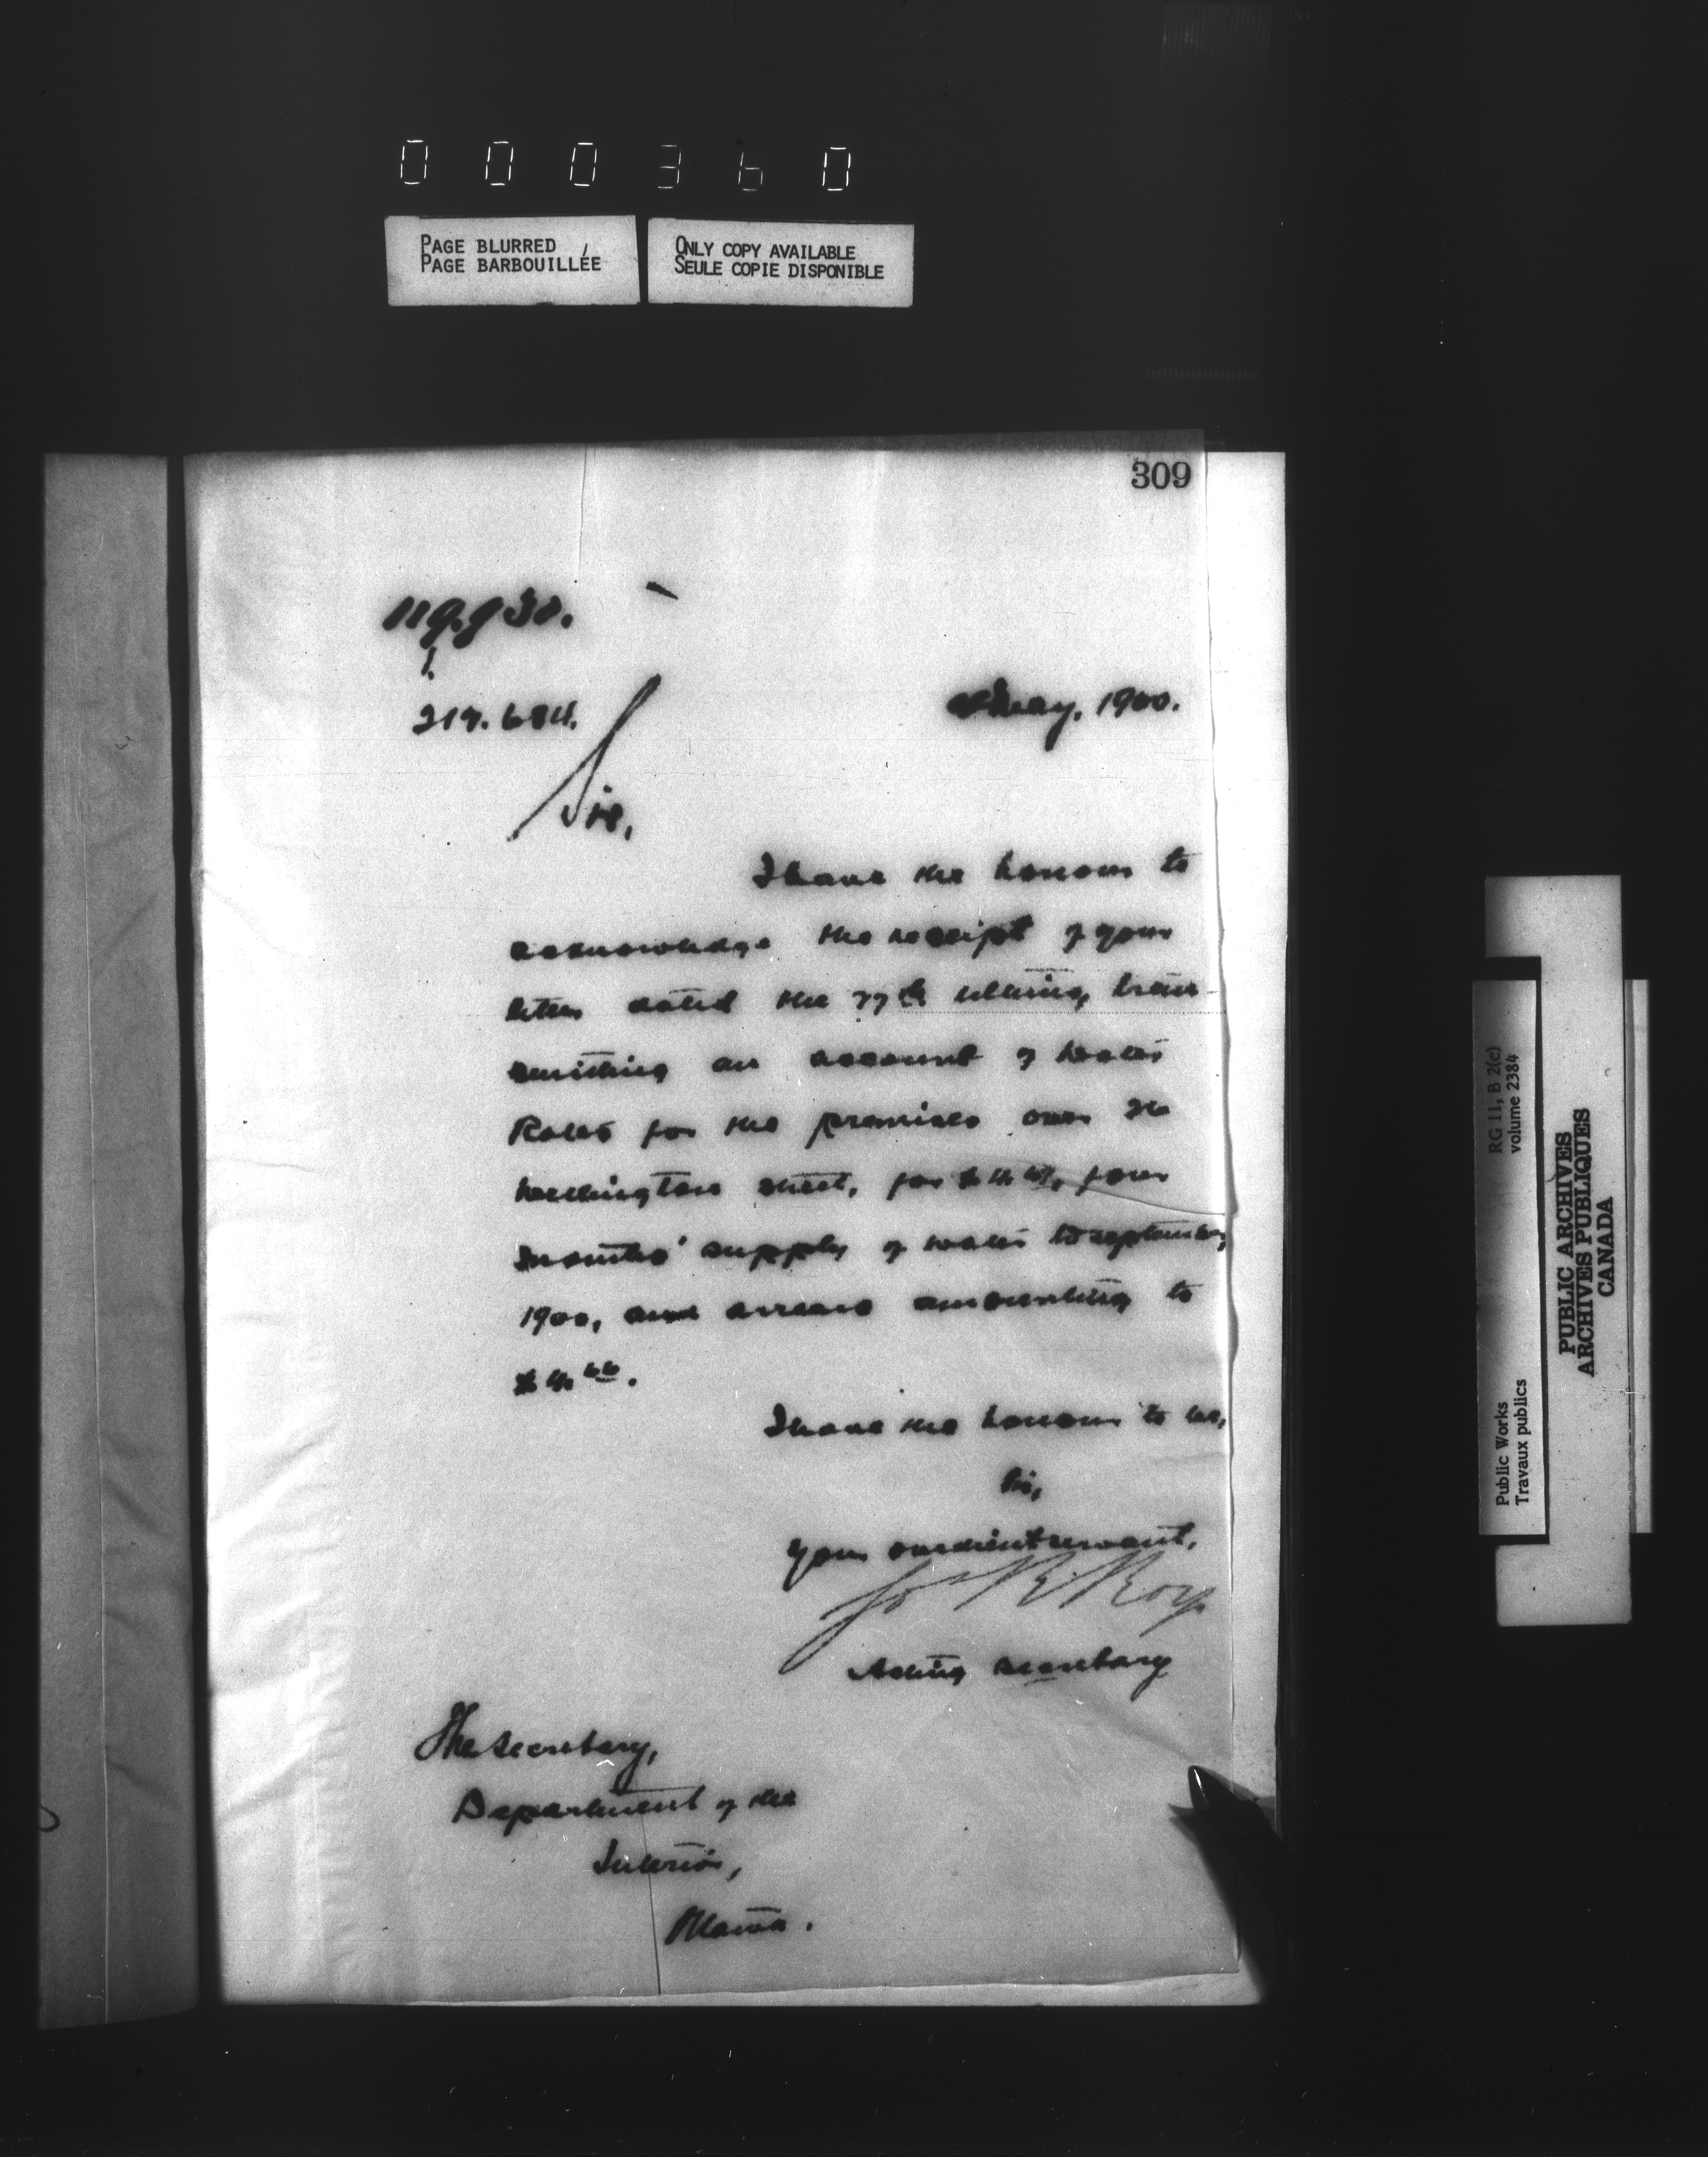 000360
PAGE BLURRED
PAGE BARBOUILLÉE
ONLY COPY AVAILABLE
SEULE COPIE DISPONIBLE
309
119.930.
1.
217.684.
May, 1900.
Sir,
I have the honour to
acknowledge the receipt of your
letter dated the ultimo, tran-
smitting an account of water
Rates for the premises
Wellington street, for four
months' supply of water to September,
1900, and arrears amounting to
I have the honour to be,
Sir,
Your obedient servant,
Jos R. Roy
Acting Secretary
The Secretary,
Department of the
Interior,
Ottawa.
RG 11, B 2(c)
volume 2384
Public Works
Travaux publics
PUBLIC ARCHIVES
ARCHIVES PUBLIQUES
CANADA